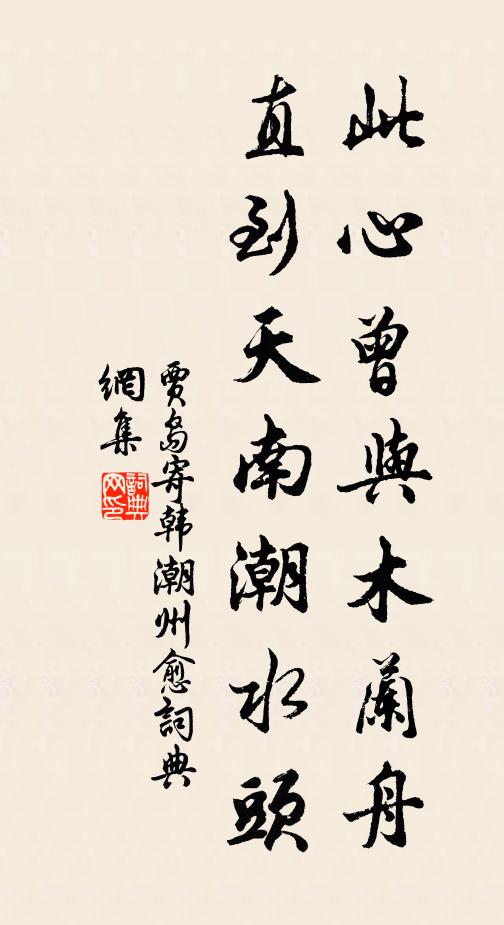 此心曾與木蘭舟
直到天南潮水頭
賈島寄韩潮州愈詞典
網集
詞典
网印